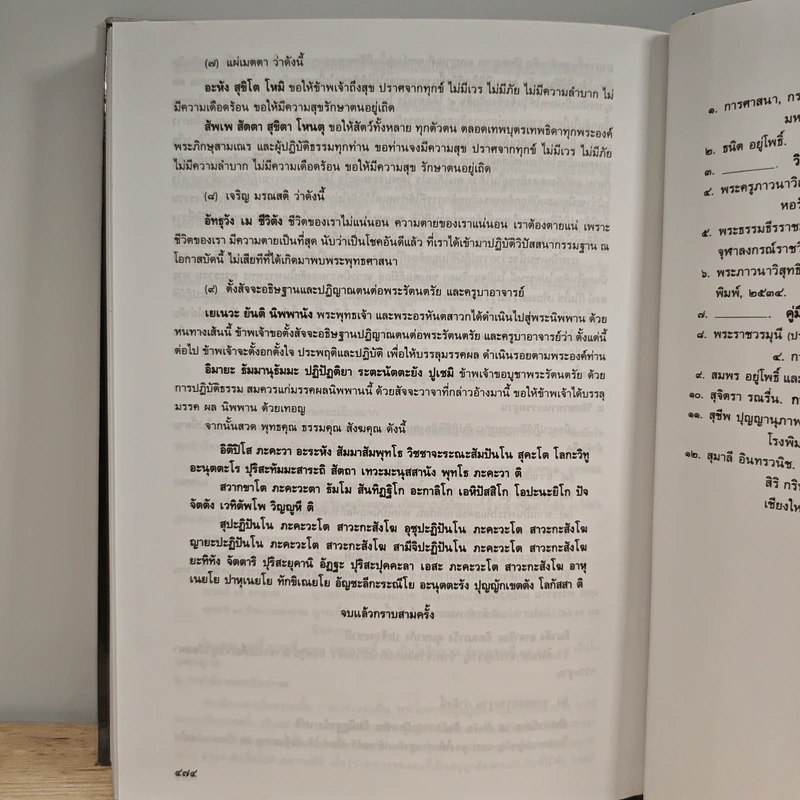 (๗) แผ่เมตตา ว่าดังนี้
อะหัง สุขิโต โหมิ ขอให้ข้าพเจ้าถึงสุข ปราศจากทุกข์ ไม่มีเวร ไม่มีภัย ไม่มีความลำบาก ไม่
มีความเดือดร้อน ขอให้มีความสุขรักษาตนอยู่เถิด
สัพเพ สัตตา สุขิตา โหนตุ ขอให้สัตว์ทั้งหลาย ทุกตัวตน ตลอดเทพบุตรเทพธิดาทุกพระองค์
พระภิกษุสามเณร และผู้ปฏิบัติธรรมทุกท่าน ขอท่านจงมีความสุข ปราศจากทุกข์ ไม่มีเวร ไม่มีภัย
ไม่มีความลำบาก ไม่มีความเดือดร้อน ขอให้มีความสุข รักษาตนอยู่เถิด
(๘) เจริญ มรณสติ ว่าดังนี้
อัทธุวัง เม ชีวิตัง ชีวิตของเราไม่แน่นอน ความตายของเราแน่นอน เราต้องตายแน่ เพราะ
ชีวิตของเรา มีความตายเป็นที่สุด นับว่าเป็นโชคอันดีแล้ว ที่เราได้เข้ามาปฏิบัติวิปัสสนากรรมฐาน ณ
โอกาสบัดนี้ ไม่เสียทีที่ได้เกิดมาพบพระพุทธศาสนา
(๙) ตั้งสัจจะอธิษฐานและปฏิญาณตนต่อพระรัตนตรัย และครูบาอาจารย์
เยเนวะ ยันติ นิพพานัง พระพุทธเจ้า และพระอรหันตสาวกได้ดำเนินไปสู่พระนิพพาน ด้วย
หนทางเส้นนี้ ข้าพเจ้าขอตั้งสัจจะอธิษฐานปฏิญาณตนต่อพระรัตนตรัย และครูบาอาจารย์ว่า ตั้งแต่นี้
ต่อไป ข้าพเจ้าจะตั้งอกตั้งใจ ประพฤติและปฏิบัติ เพื่อให้บรรลุมรรคผล ดำเนินรอยตามพระองค์ท่าน
อิมายะ ธัมมานุธัมมะ ปฏิปัฏติยา ระตะนัตตะยัง ปูเชมิ ข้าพเจ้าขอบูชาพระรัตนตรัย ด้วย
การปฏิบัติธรรม สมควรแก่มรรคผลนิพพานนี้ ด้วยสัจจะวาจาที่กล่าวอ้างมานี้ ขอให้ข้าพเจ้าได้บรรลุ
มรรค ผล นิพพาน ด้วยเทอญ
จากนั้นสวด พุทธคุณ ธรรมคุณ สังฆคุณ ดังนี้
อิติปิโส ภะคะวา อะระหัง สัมมาสัมพุทโธ วิชชาจะระณะสัมปันโน สุคะโต โลกะวิทู
อะนุตตะโร ปุริสะทัมมะสาระถิ สัตถา เทวะมะนุสสานัง พุทโธ ภะคะวา ติ
สวากขาโต ภะคะวะตา ธัมโม สันทิฏฐิโก อะกาลิโก เอหิปัสสิโก โอปะนะยิโก ปัจ
จัตตัง เวทิตัพโพ วิญญูหี ติ
สุปะฏิปันโน ภะคะวะโต สาวะกะสังโฆ อุชุปะฏิปันโน ภะคะวะโต สาวะกะสังโฆ
ญายะปะฏิปันโน ภะคะวะโต สาวะกะสังโฆ สามีจิปะฏิปันโน ภะคะวะโต สาวะกะสังโฆ
ยะทิทัง จัตตาริ ปุริสะยุคานิ อัฏฐะ ปุริสะปุคคะลา เอสะ ภะคะวะโต สาวะกะสังโฆ อาหุ
เนยโย ปาหุเนยโย ทักขิเณยโย อัญชะลีกะระณีโย อะนุตตะรัง ปุญญักเขตตัง โลกัสสา ติ
จบแล้วกราบสามครั้ง
๔๗๔
๑. การศาสนา, กร
มห
๒. ธนิต อยู่โพธิ์.
๓. ________. วิ
๔. พระครูภาวนาวิ
หอรั
๕. พระธรรมธีรราช
จุฬาลงกรณ์ราชวิ
๖. พระภาวนาวิสุทธิ
พิมพ์, ๒๕๓๔.
๗. ________. คู่มื
๘. พระราชวรมุนี (ปร
๔. ก
๙. สมพร อยู่โพธิ์ และ
๑๐. สุจิตรา รณรื่น. ก
๑๑. สุชีพ ปุญญานุภาพ
โรงพิม
๑๒. สุมาลี อินทรวนิช.
สิริ กริน
เชียงให